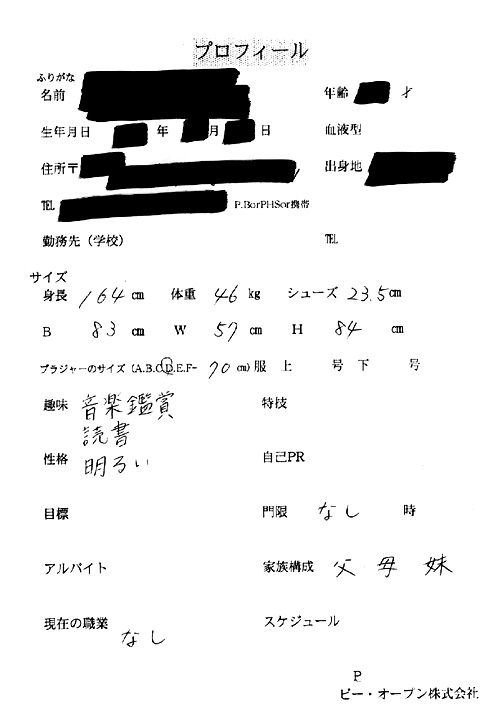 プロフィール
ふりがな
名前 年齢 才
生年月日 年 月 日 血液型
住所〒 出身地
℡ P.BorPHSor携帯
勤務先（学校） ℡
サイズ
身長 164 cm 体重 46 kg シューズ 23.5cm
B 83 cm W 57 cm H 84 cm
ブラジャーのサイズ（A.B.C.D.E.F- 70 cm）服 上 号 下 号
趣味 音楽鑑賞 特技
読書
性格 明るい 自己PR
目標 門限 なし 時
アルバイト 家族構成 父 母 妹
現在の職業 なし スケジュール
P
ピー・オープン株式会社